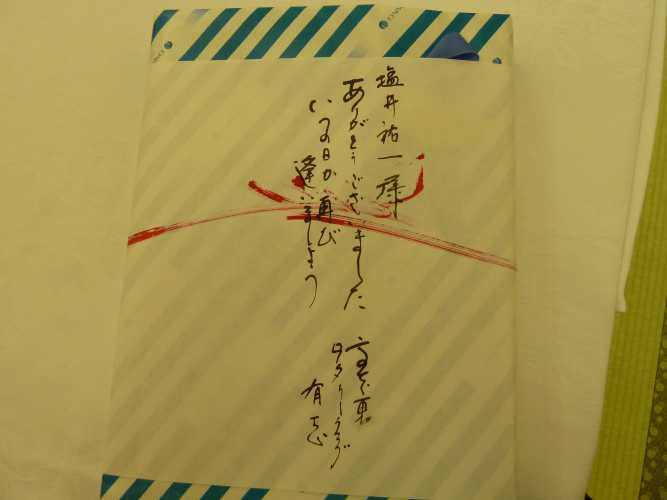 塩井祐一様
ありがとうございました
いつの日か再び
逢いましょう
高知東
ロータリークラブ
有志